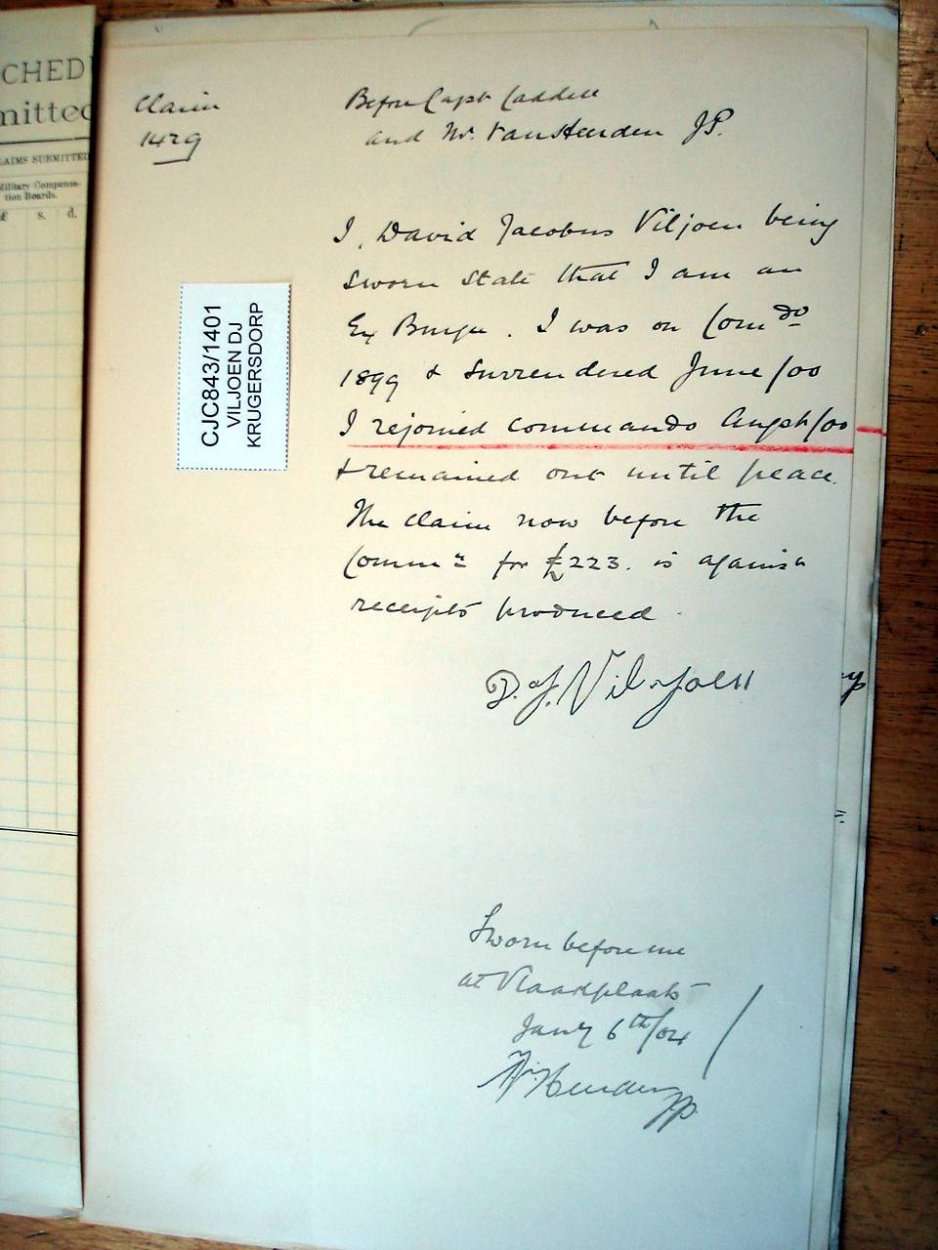 CHED
mitted
LAIMS SUBMITTED
Military Compensa-
tion Boards.
£ s. d.
Claim
1429
Before Capt Caddell
and Mr. Van Heerden JP.
I, David Jacobus Viljoen being
sworn state that I am an
Ex Burger. I was on Comdo
1899 & surrendered June/00
I rejoined commando Augst/00
& remained out until peace.
The claim now before the
Commn for £223. is against
receipts produced.
D. J. Viljoen
CJC843/1401
VILJOEN DJ
KRUGERSDORP
Sworn before me
at
Jany 6th/04
JP.